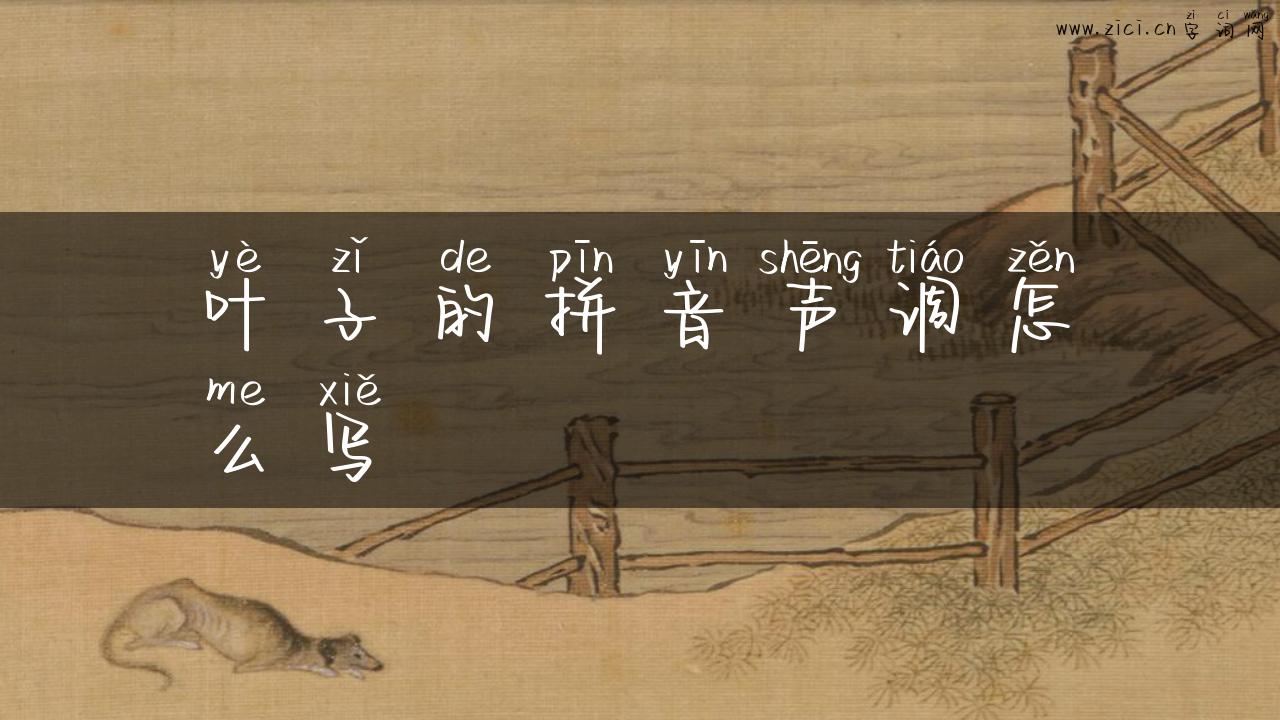 zi ci wang
www.zici.cn 字词网
yè zǐ de pīn yīn shēng tiáo zěn
叶子的拼音声调怎
me xiě
么写